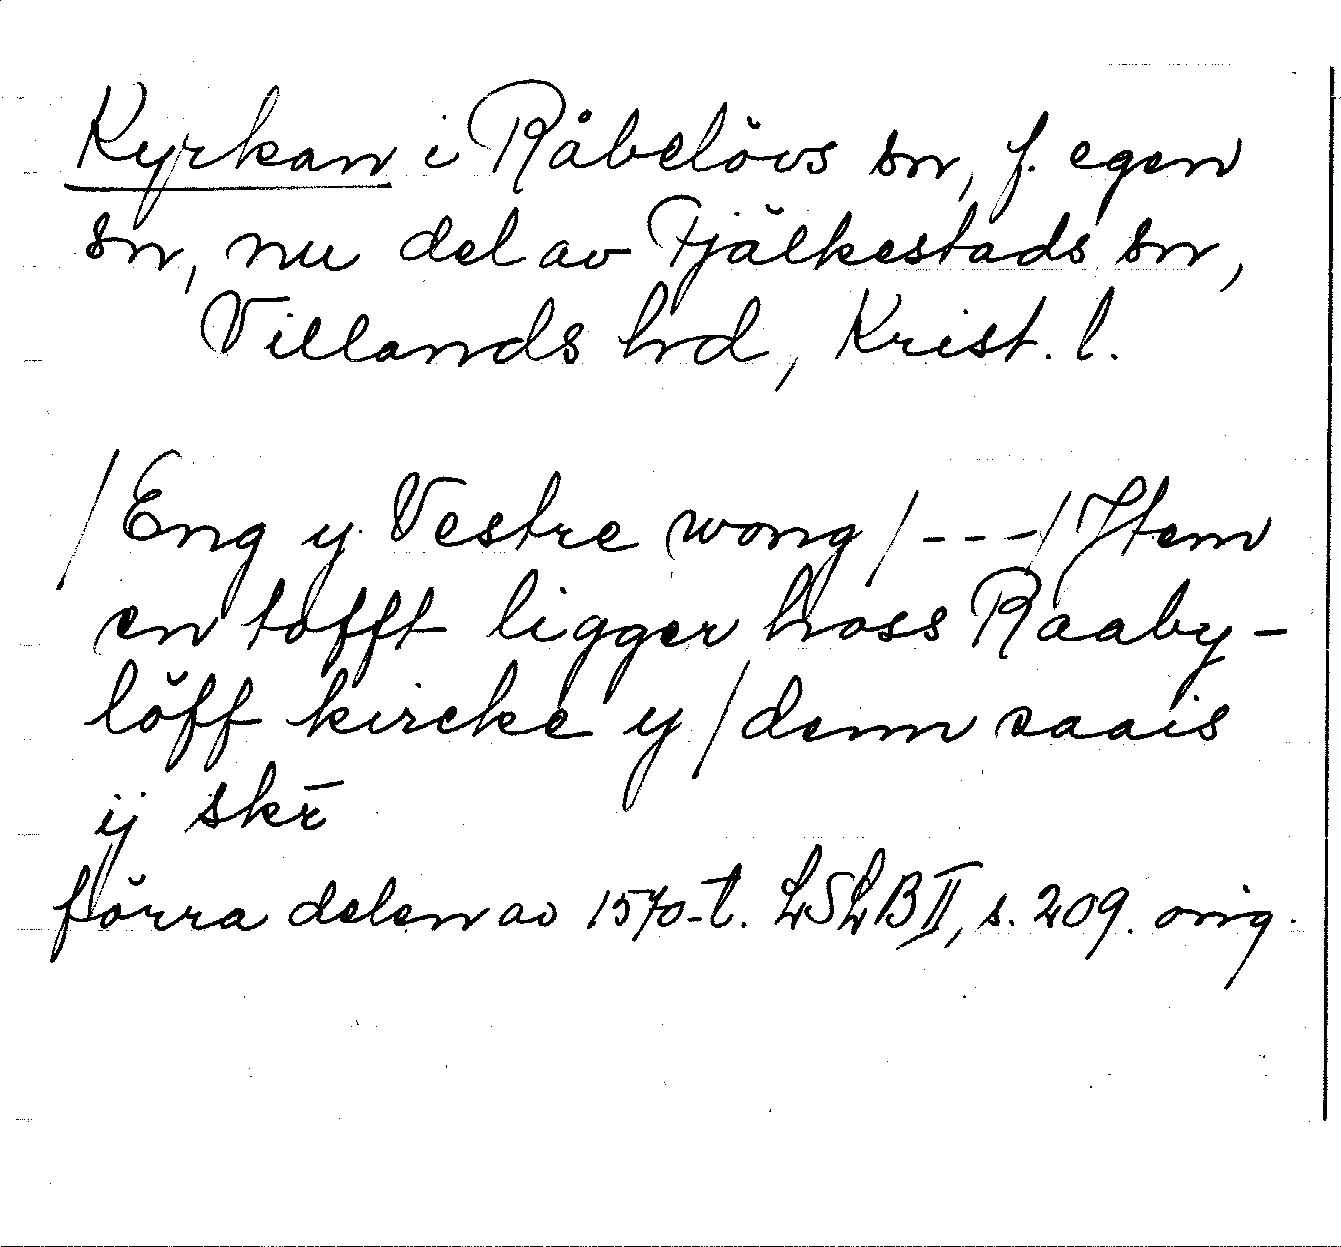 Kyrkan i Råbelövs sn, f. egen
sn, nu del av Fjälkestads sn,
Villands hd, Krist. l.
/Eng y Vestre wong/---/Item
en tofft ligger hoss Raaby-
löff kircke y/denn saais
ij skr̄
förra delen av 1570-t. LSLB II, s. 209. orig.